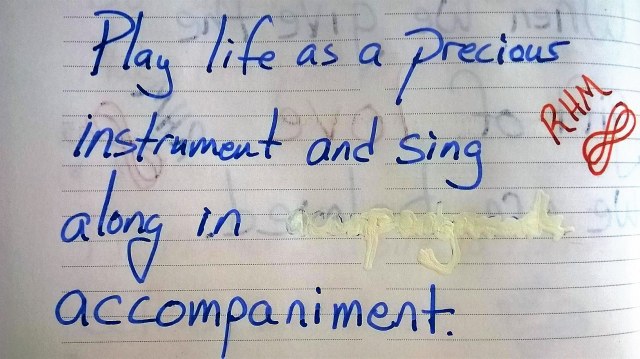 Play life as a precious
instrument and sing
along in
accompaniment.
RHM